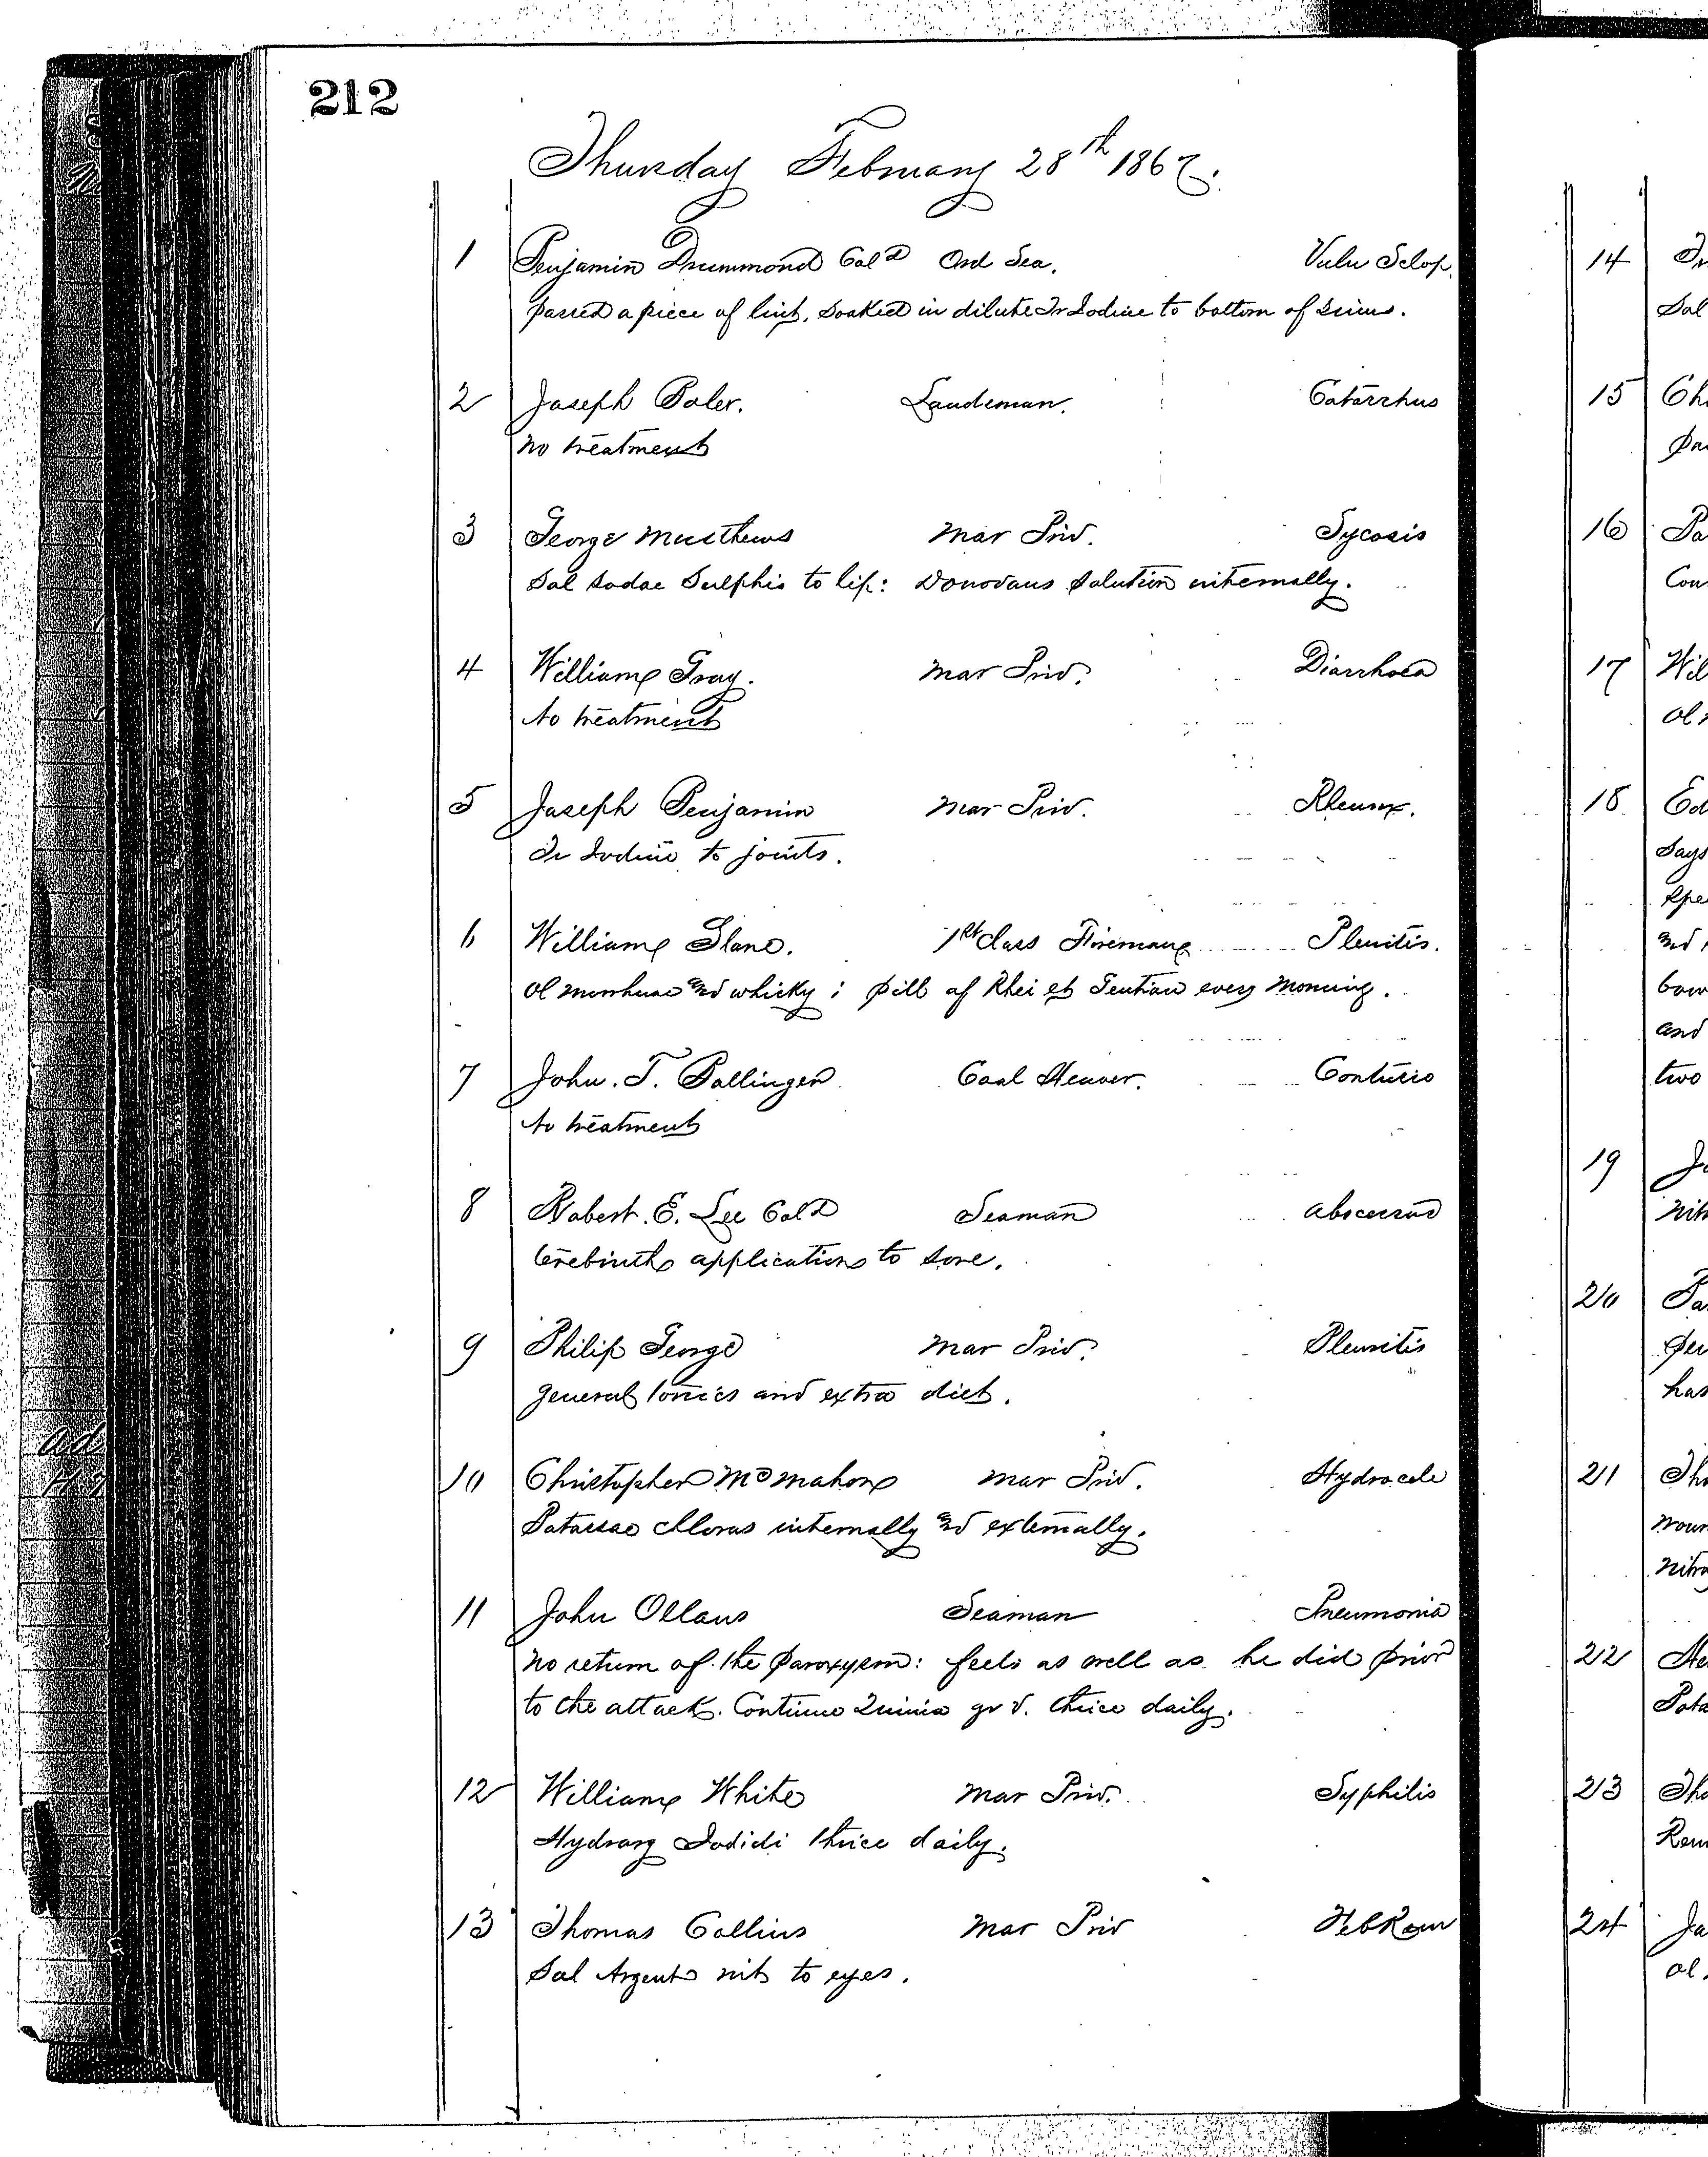 212
Thursday February 28th 1867.
1 Benjamin Drummond Cold Ord Sea. Vuln Sclop.
passed a piece of lint, soaked in dilute Tr Iodine to bottom of sinus.
2 Joseph Landsman. Catarrhus
no treatment
3 George Matthews Mar Priv. Sycosis
Sol Sodae Sulphis to lip: Donovans Solution internally.
4 William Gray. Mar Priv. Diarrhoea
No treatment
5 Joseph Benjamin Mar Priv. Rheum.
Tr Iodine to joints.
6 William Slane. 1st Class Fireman Pleuritis.
Ol morrhuae and whisky; pill of Rhei et Gentian every morning.
7 John. T. Ballinger Coal Heaver. Contusio
No treatment
8 Robert. E. Lee Cold Seaman Abscessus
terebinth applications to sore.
9 Philip George Mar Priv. Pleuritis
general tonics and extra diet.
10 Christopher McMahon Mar Priv. Hydrocele
Potassae Chloras internally and externally.
11 John Ollaus Seaman Pneumonia
No return of the paroxysm: feels as well as he did prior
to the attack. Continue Quinia gr V. thrice daily.
12 William White Mar Priv. Syphilis
Hydrarg Iodidi thrice daily.
13 Thomas Collins Mar Priv Feb Rem
Sol Argent nit to eyes.
14
Sol
15 Ch
16 Pa
Con
17 Wil
Ol
18 Ed
Says
and
bow
and
two
19 Jo
nit
20 Pa
has
21 Tho
22 He
Pota
23 Tho
24 Ja
Ol